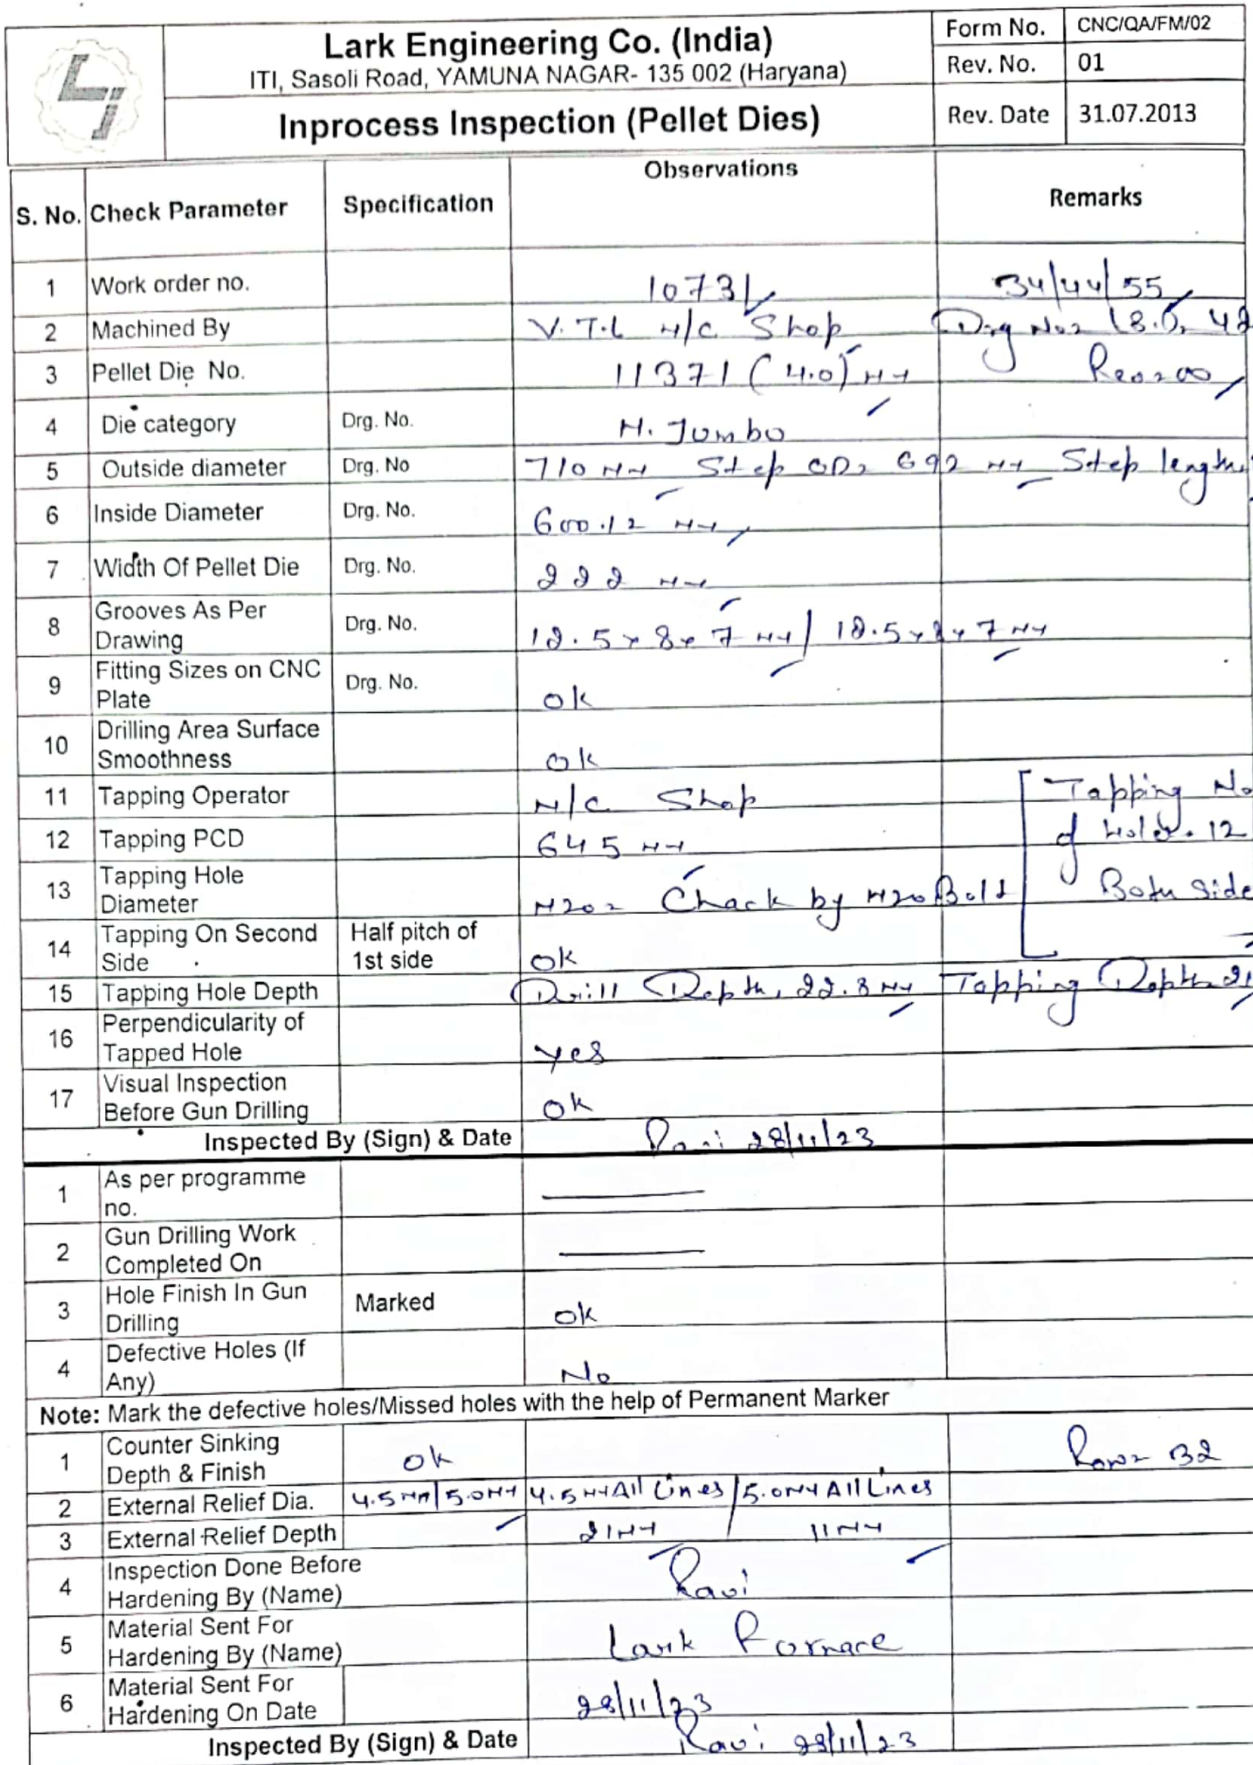 Lark Engineering Co. (India)
ITI, Sasoli Road, YAMUNA NAGAR- 135 002 (Haryana)
Inprocess Inspection (Pellet Dies)
Form No. CNC/QA/FM/02
Rev. No. 01
Rev. Date 31.07.2013
S. No. Check Parameter Specification Observations Remarks
1 Work order no. 10731 34/44/55
2 Machined By V.T.L M/C Shop Drg No=
3 Pellet Die No. 11371 (4.0) MM
4 Die category Drg. No. H. Jumbo
5 Outside diameter Drg. No 710 MM Step OD= 692 MM Step length
6 Inside Diameter Drg. No. 600.12 MM
7 Width Of Pellet Die Drg. No. 222 MM
8 Grooves As Per Drawing Drg. No. 12.5 x 8 x 7 MM / 12.5 x 8 x 7 MM
9 Fitting Sizes on CNC Plate Drg. No. ok
10 Drilling Area Surface Smoothness ok
11 Tapping Operator M/C Shop Tapping No
12 Tapping PCD 645 MM of holes. 12
13 Tapping Hole Diameter M20= Chack by M20 Bolt Both Side
14 Tapping On Second Side Half pitch of 1st side ok
15 Tapping Hole Depth Drill Depth, 22.8 MM Tapping Depth 21
16 Perpendicularity of Tapped Hole yes
17 Visual Inspection Before Gun Drilling ok
Inspected By (Sign) & Date Ravi 28/11/23
1 As per programme no.
2 Gun Drilling Work Completed On
3 Hole Finish In Gun Drilling Marked ok
4 Defective Holes (If Any) No
Note: Mark the defective holes/Missed holes with the help of Permanent Marker
1 Counter Sinking Depth & Finish ok Row= 32
2 External Relief Dia. 4.5 MM/5.0MM 4.5 MM All Lines / 5.0MM All Lines
3 External Relief Depth 21MM / 11MM
4 Inspection Done Before Hardening By (Name) Ravi
5 Material Sent For Hardening By (Name) Lark Fornace
6 Material Sent For Hardening On Date 28/11/23
Inspected By (Sign) & Date Ravi 28/11/23